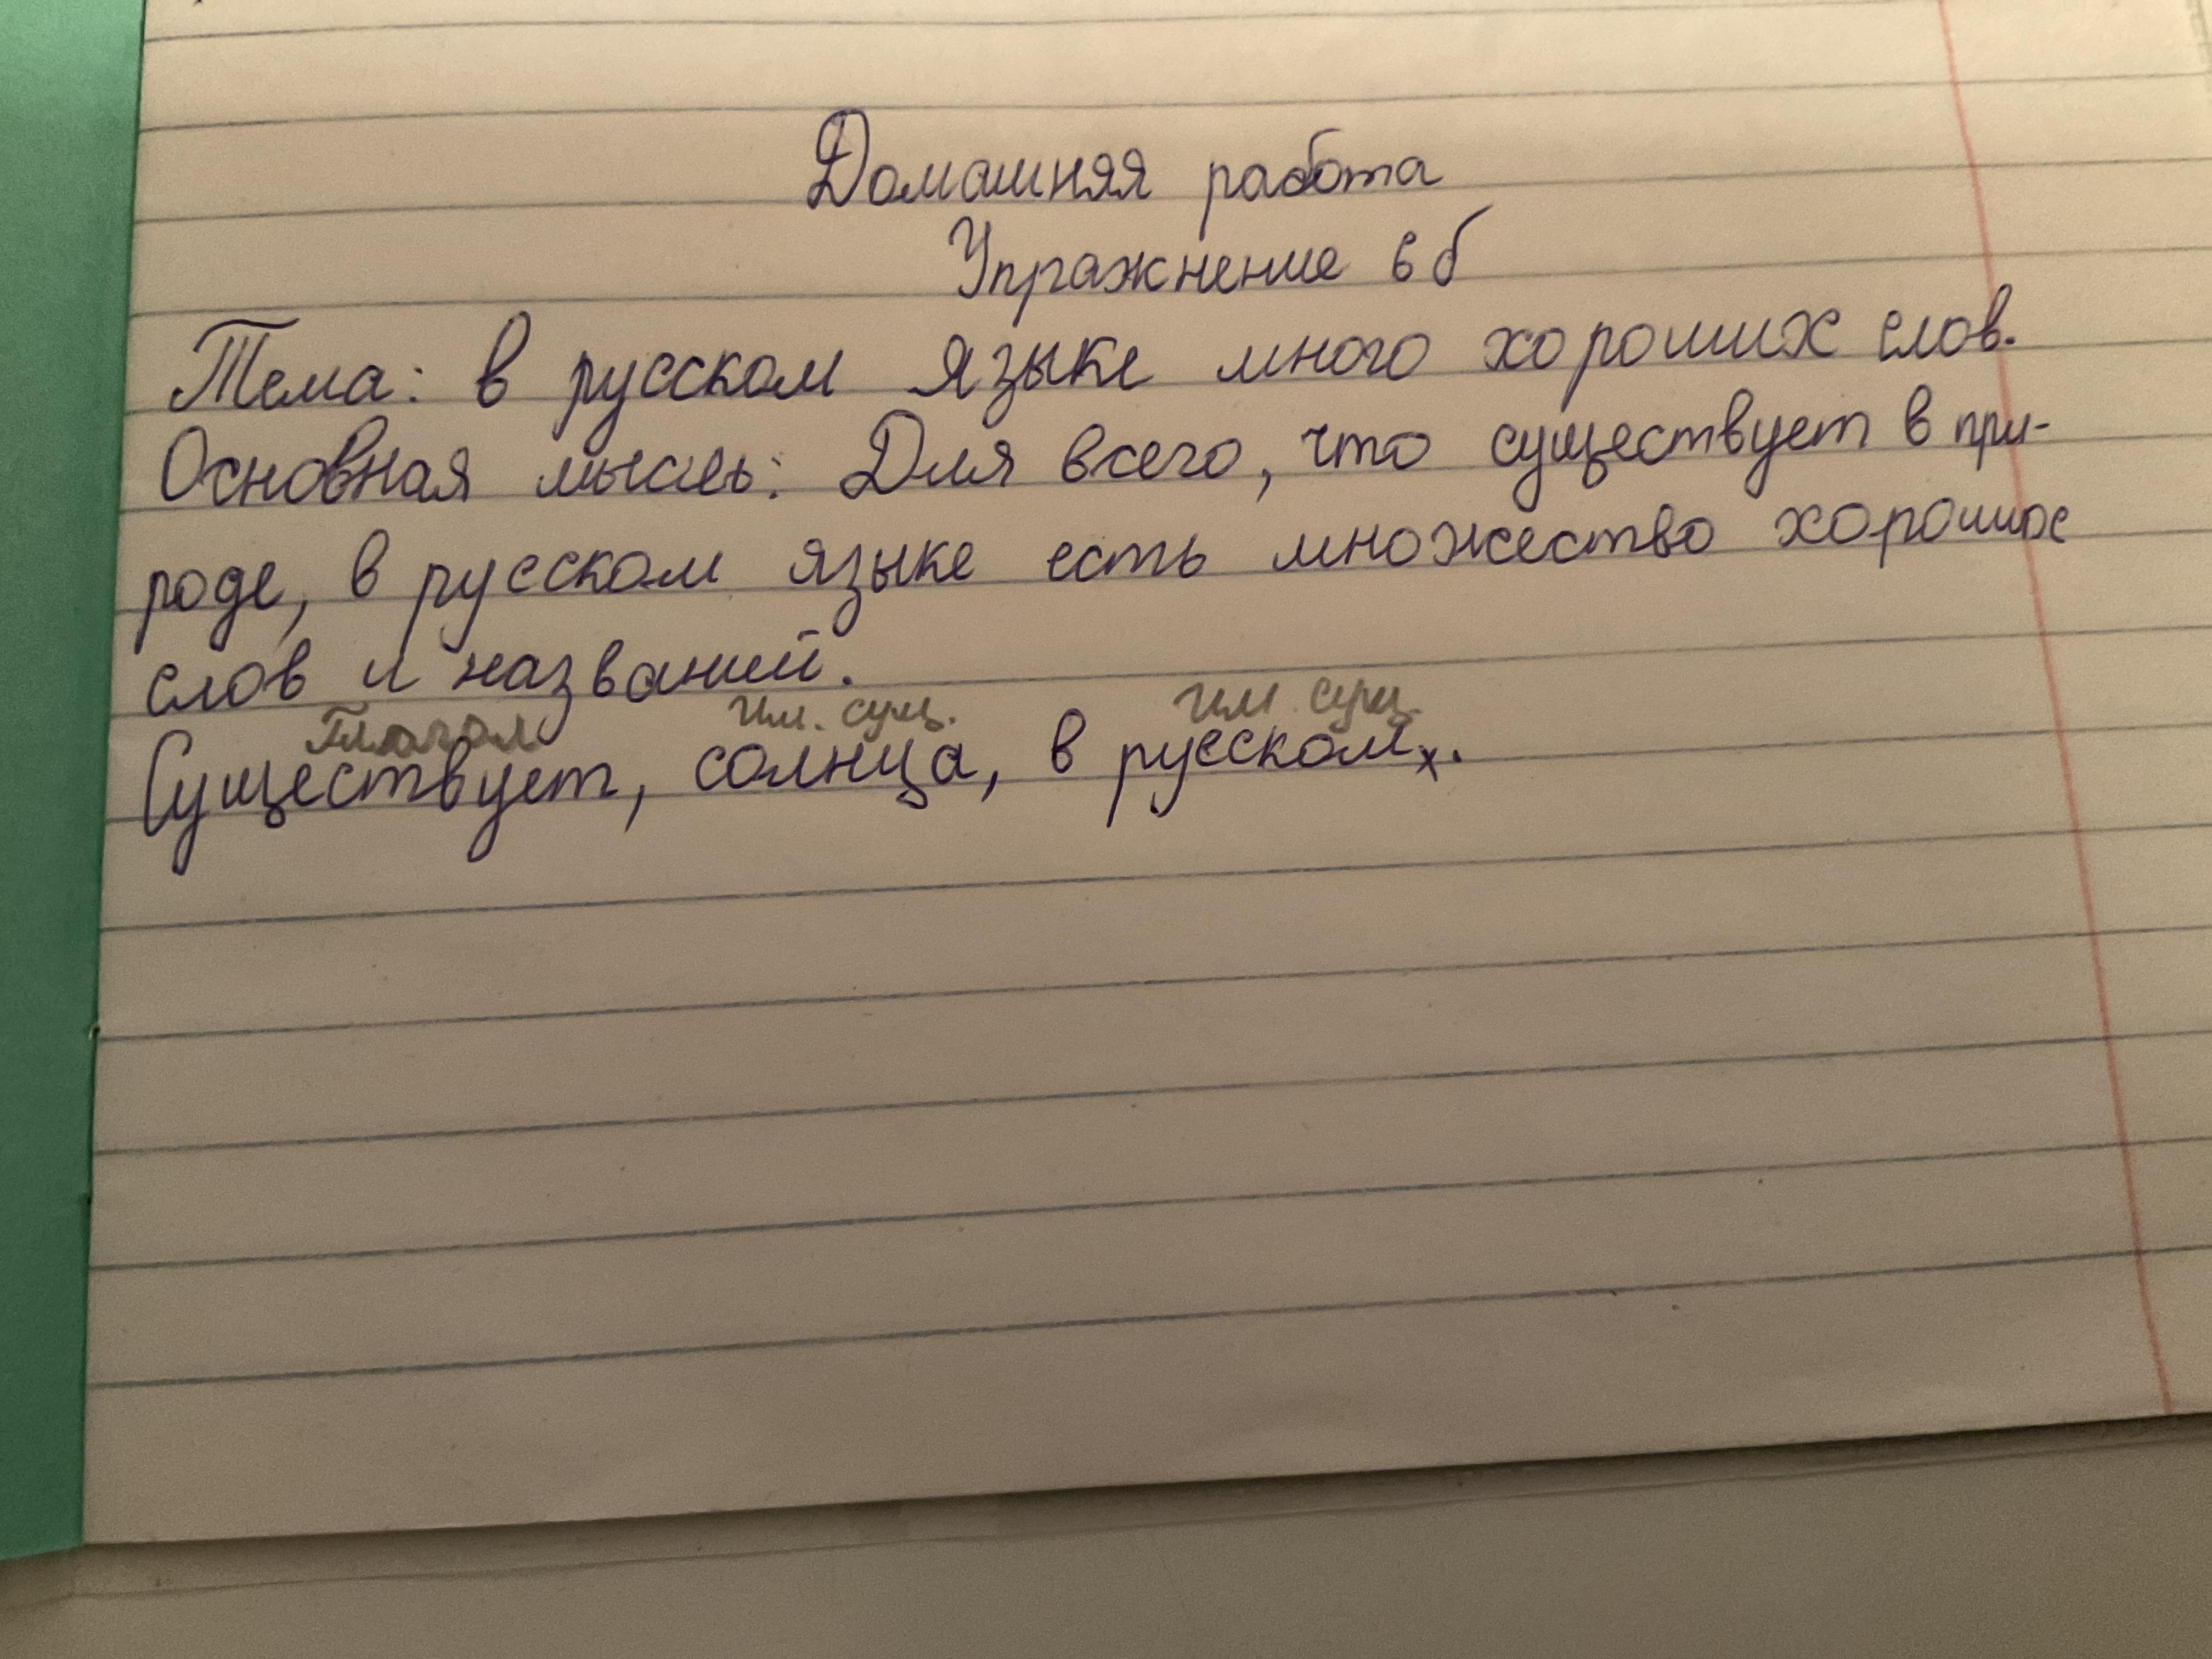 Домашняя работа
Упражнение 6 б
Тема: в русском языке много хороших слов.
Основная мысль: Для всего, что существует в при-
роде, в русском языке есть множество хороших
слов и названий.
Глагол им. сущ. им. сущ.
Существует, солнца, в русском х.